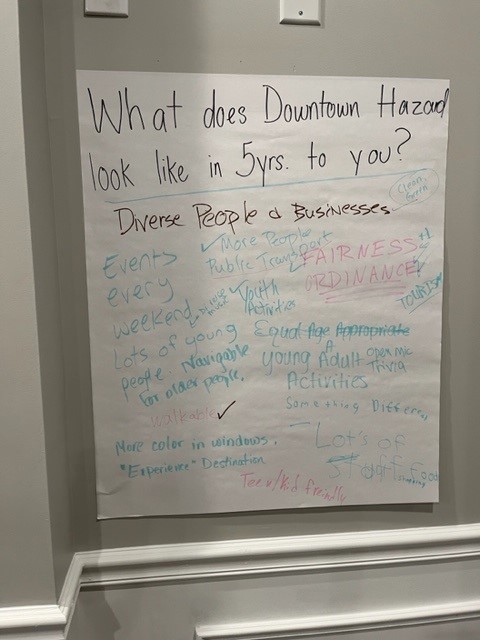 What does Downtown Hazard
look like in 5yrs. to you?
Clean,
Green
Diverse People & Businesses
More People
Public Transport
FAIRNESS +1
ORDINANCE
TOURISM
Events
every
weekend
Youth
Activities
Lots of young
people. Navigable
for older people.
Equal Age Appropriate
Young Adult
Activities
open mic
Trivia
Something Differ
walkable ✓
More color in windows.
"Experience" Destination
Lot's of
Stuff
Food
Teen/Kid freindly